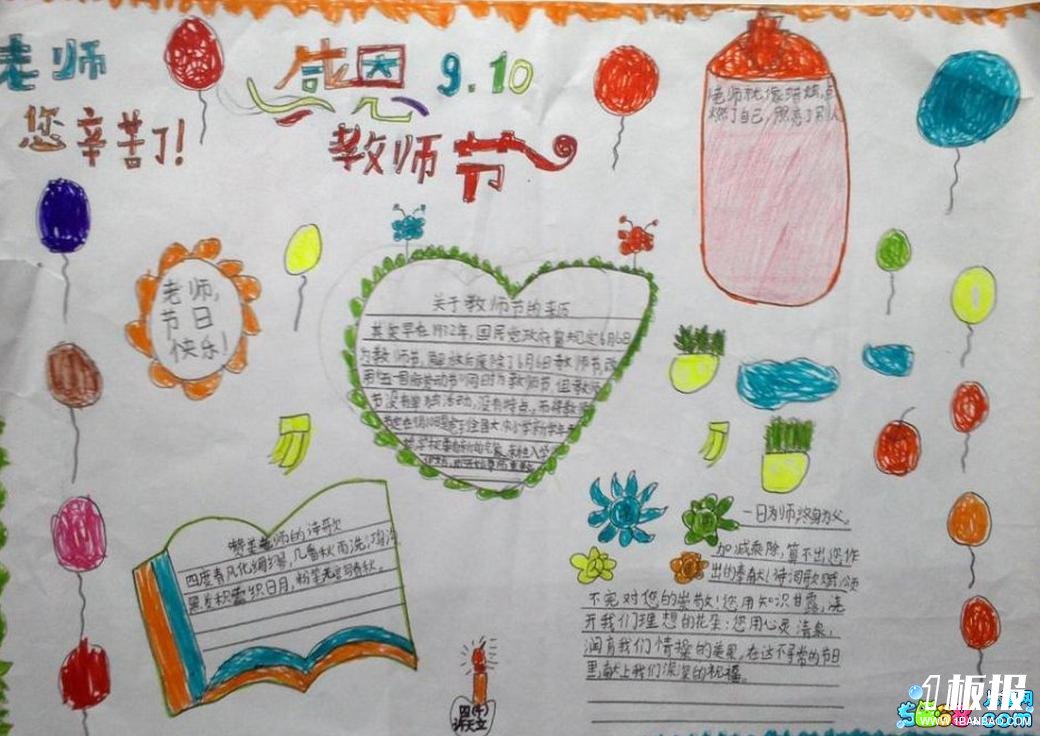 老师
您辛苦了!
感恩 9.10
教师节
老师就像蜡烛,点
燃了自己,照亮了别人
老师,
节日
快乐!
关于教师节的来历
其实早在1932年,国民党政府曾规定6月6日
为教师节,解放后废除了6月6日教师节改
用"五一国际劳动节"同时为教师节 但教师
节没有单独活动,没有特点。而将教师
节定在9月10日是考虑到全国大、中小学新学年
赞美老师的诗歌
四度春风化绸缪,几番秋雨洗鸿沟
黑发积霜织日月,粉笔无言写春秋。
一日为师,终身为父。
加减乘除,算不出您作
出的奉献!诗词歌赋,颂
不完对您的崇敬!您用知识甘露,浇
开我们理想的花朵;您用心灵清泉,
润育我们情操的美果,在这不寻常的节日
里,献上我们深深的祝福。
1板报
WWW.1BANBAO.COM